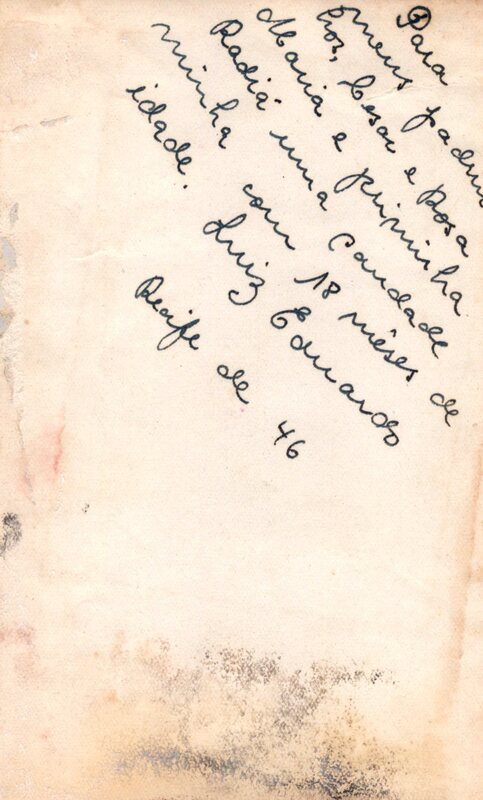 Para
meus padrin
hos, Cesar e Rosa
Maria e priminha
Radiá uma Caudade
minha com 18 mêses de
idade.
Luiz Eduardo
Recife de 46